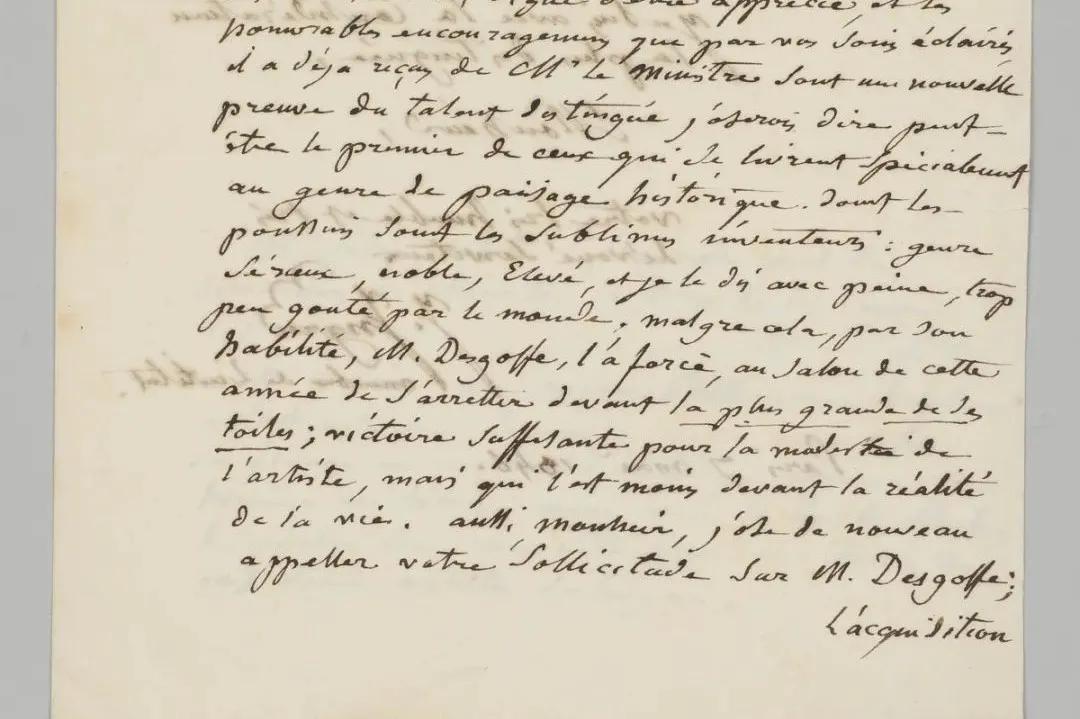 d'être apprécié, et les
honorables encouragemens que par vos soins éclairés
il a déja reçus de Mr le Ministre sont une nouvelle
preuve du talent distingué, j'oserois dire peut-
être le premier de ceux qui se livrent spécialement
au genre de paisage historique. dont les
poussins sont les sublimes inventeurs : genre
sérieux, noble, Elevé, et je le dis avec peine, trop
peu gouté par le monde, malgré cela, par son
habilité, M. Desgoffe, l'a forcé, au salon de cette
année de s'arretter devant la plus grande de ses
toiles ; victoire suffisante pour la modestie de
l'artiste, mais qui l'est moins devant la réalité
de la vie. aussi, monsieur, j'ose de nouveau
appeller votre sollicitude sur M. Desgoffe ;
L'acquisition